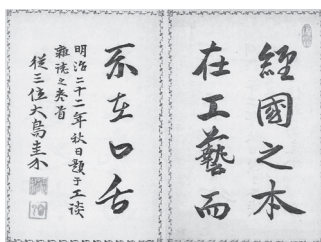 經國之本
在工藝而
不在口舌
明治二十二年秋日題于工談
雜誌之卷首
從三位大鳥圭介